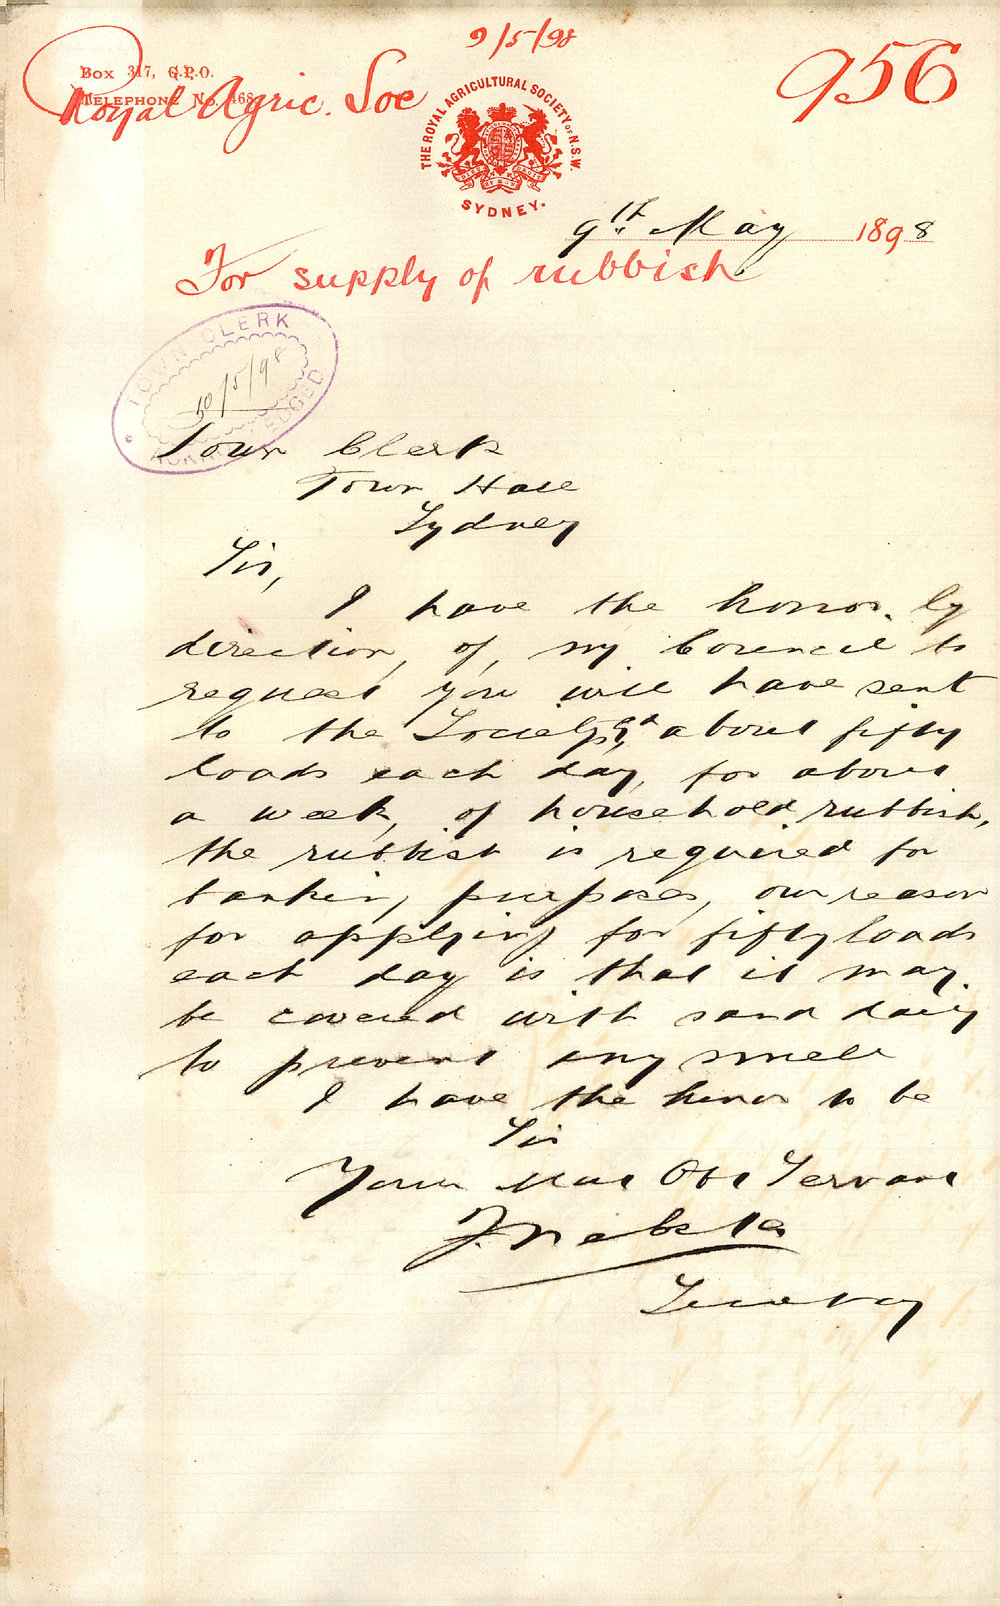 9/5/98
956
Box 317, G.P.O.
Telephone No. 468
Royal Agric. Soc
THE ROYAL AGRICULTURAL SOCIETY OF N.S.W.
SYDNEY.
9th May 1898
For supply of rubbish
TOWN CLERK
10/5/98
ACKNOWLEDGED
Town Clerk
Town Hall
Sydney
Sir,
I have the honor, by
direction, of, my Council to
request you will have sent
to the Society's about fifty
loads each day, for about
a week, of household rubbish,
the rubbish is required for
banking purposes, our reason
for applying for fifty loads
each day is that it may
be covered with sand daily
to prevent any smell
I have the honor to be
Sir
Your Most Obt Servant
F. Webster
Secretary